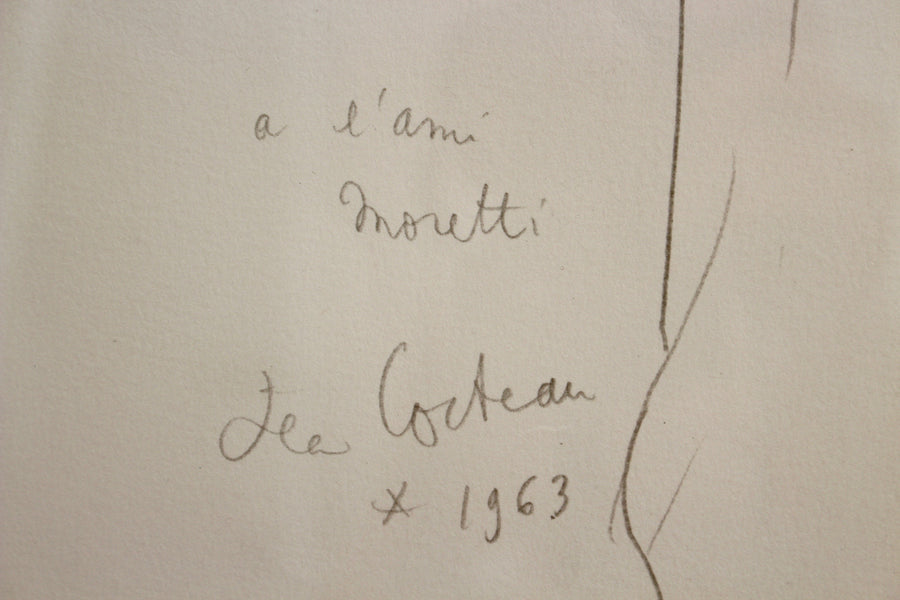 a l'ami
Moretti
Jean Cocteau
* 1963